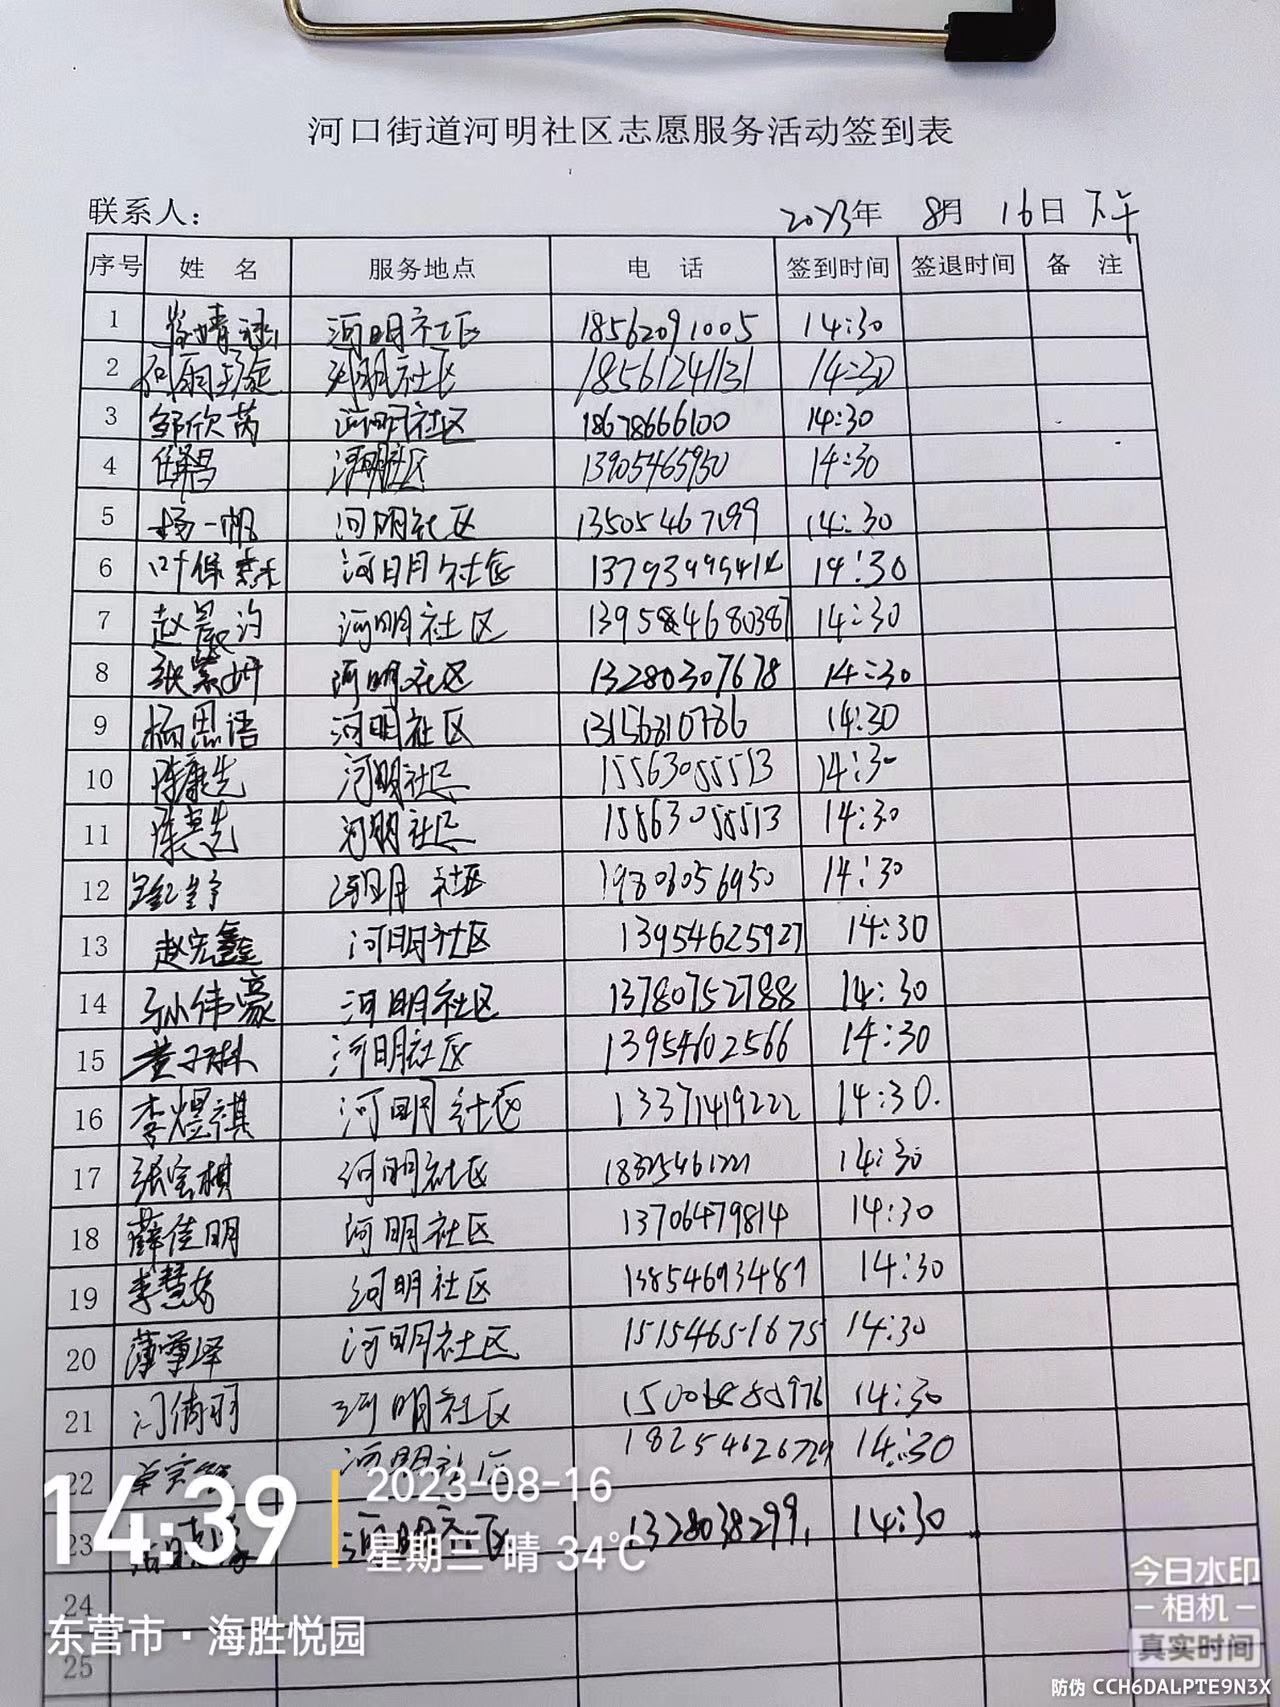 河口街道河明社区志愿服务活动签到表
联系人： 2023年 8月 16日 下午
序号 姓 名 服务地点 电 话 签到时间 签退时间 备 注
1 河明社区 18562091005 14:30
2 河明社区 18561241131 14:30
3 邹欣芮 河明社区 18678666100 14:30
4 河明社区 13905465950 14:30
5 杨一帆 河明社区 13505467199 14:30
6 叶保 河明社区 14:30
7 赵晨汐 河明社区 14:30
8 张紫妍 河明社区 13280307678 14:30
9 杨思语 河明社区 14:30
10 陈康先 河明社区 15563055513 14:30
11 河明社区 15563055513 14:30
12 河明社区 19806056950 14:30
13 赵宏鑫 河明社区 13954625927 14:30
14 孙伟豪 河明社区 13780752788 14:30
15 董子琳 河明社区 13954602566 14:30
16 李煜祺 河明社区 13371419222 14:30.
17 张宝棋 河明社区 18325461221 14:30
18 薛佳明 河明社区 13706479814 14:30
19 李慧妨 河明社区 13854693487 14:30
20 河明社区 15154651675 14:30
21 门倩羽 河明社区 14:30
22 河明社区 18254626729 14:30
23 河明社区 1328038299 14:30
24
25
14:39
2023-08-16
星期三 晴 34℃
东营市·海胜悦园
今日水印
-相机-
真实时间
防伪 CCH6DALPTE9N3X